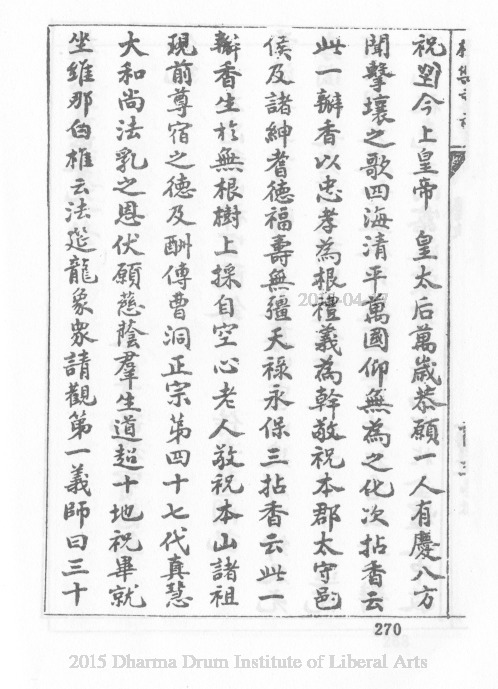 祝聖今上皇帝 皇太后萬歲恭願一人有慶八方
聞擊壤之歌四海清平萬國仰無為之化次拈香云
此一瓣香以忠孝為根禮義為幹敬祝本郡太守邑
侯及諸紳耆德福壽無疆天祿永保三拈香云此一
瓣香生於無根樹上採自空心老人敬祝本山諸祖
現前尊宿之德及酬傳曹洞正宗第四十七代真慧
大和尚法乳之恩伏願慈蔭羣生道超十地祝畢就
坐維那白椎云法筵龍象眾請觀第一義師曰三十
270
2015 Dharma Drum Institute of Liberal Arts